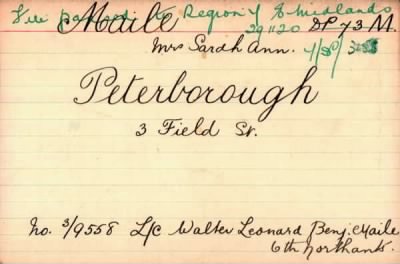 File passed to Region 7 E. Midlands
Maile 29/11/20 DP 73 M.
Mrs Sarah Ann.
Peterborough
3 Field St.
No. 3/9558 L/C Walter Leonard Benj. Maile
6th Northants.